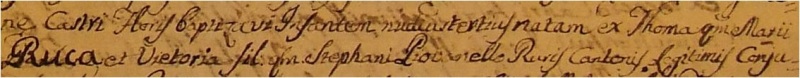 ne Castri Floris baptizavi Infantem nudiustertius natam ex Thoma qm Marii
Ruca et Victoria fil. qm Stephani Ruris Cantonis legitimis Conju-